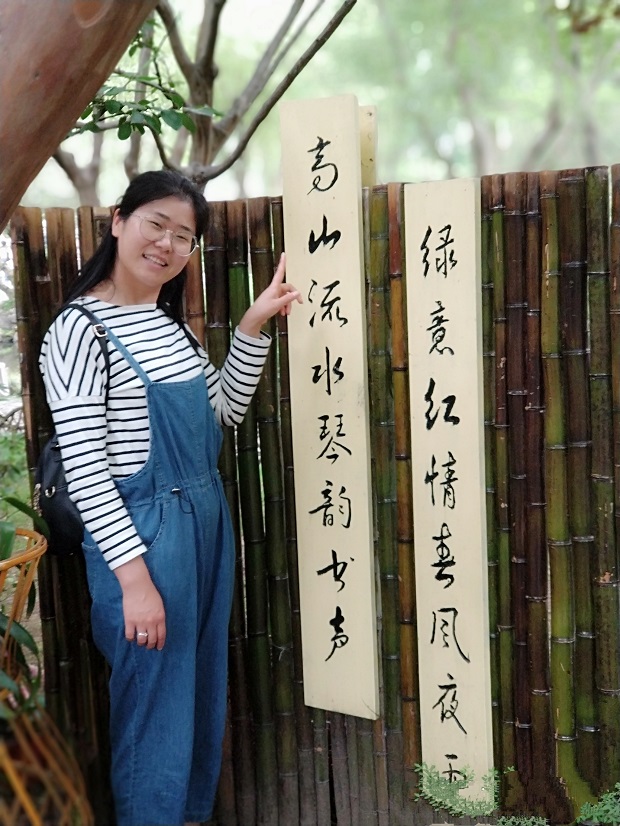 绿意红情春风夜雨
高山流水琴韵书声